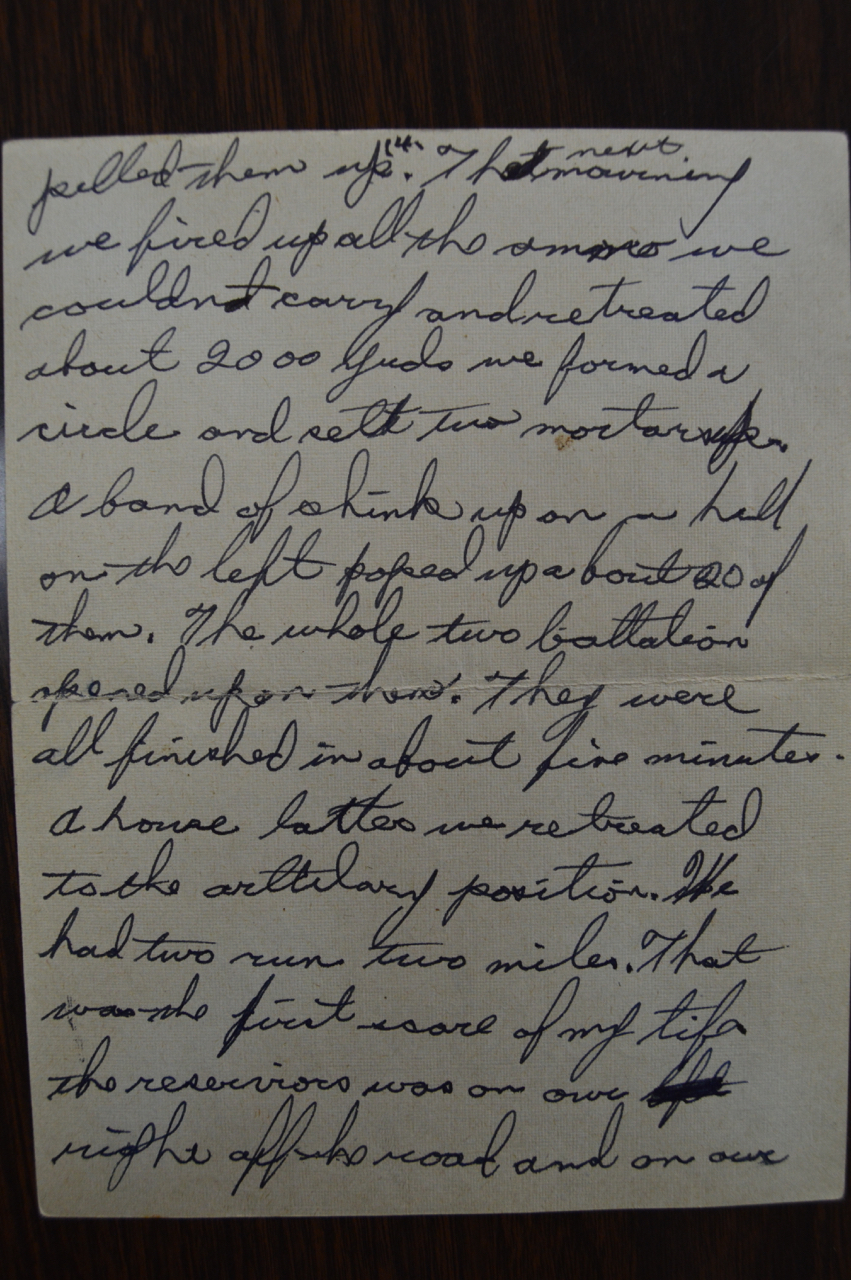 pilled them up". That next mourning
we fired up all the ammo we
couldnt carry and retreated
about 2000 yrds we formed a
circle and sett two mortars up.
A band of chink up on a hill
on the left poped up about 20 of
them. The whole two battalion
opened up on them. They were
all finished in about five minutes.
A house latter we retreated
to the arttilary position. We
had two run two miles. That
was the first scare of my life
the reserviors was on our
right off the road and on our